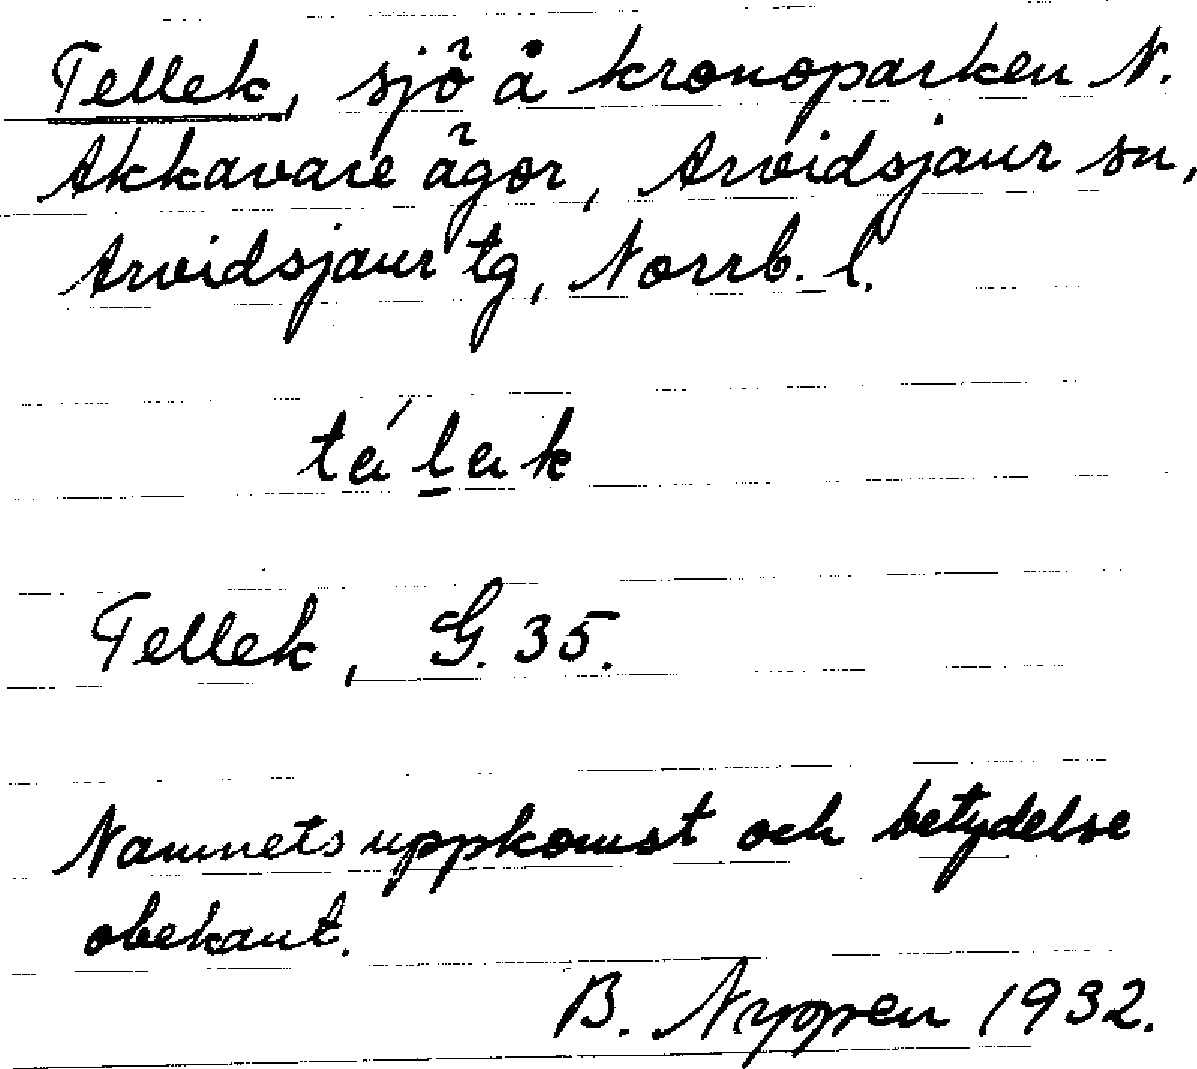 Tellek, sjö å kronoparken N.
Akkavare ägor, Arvidsjaur sn,
Arvidsjaur tg, Norrb. l.
Tellek, G. 35.
Namnets uppkomst och betydelse
obekant.
B. Nyppen 1932.